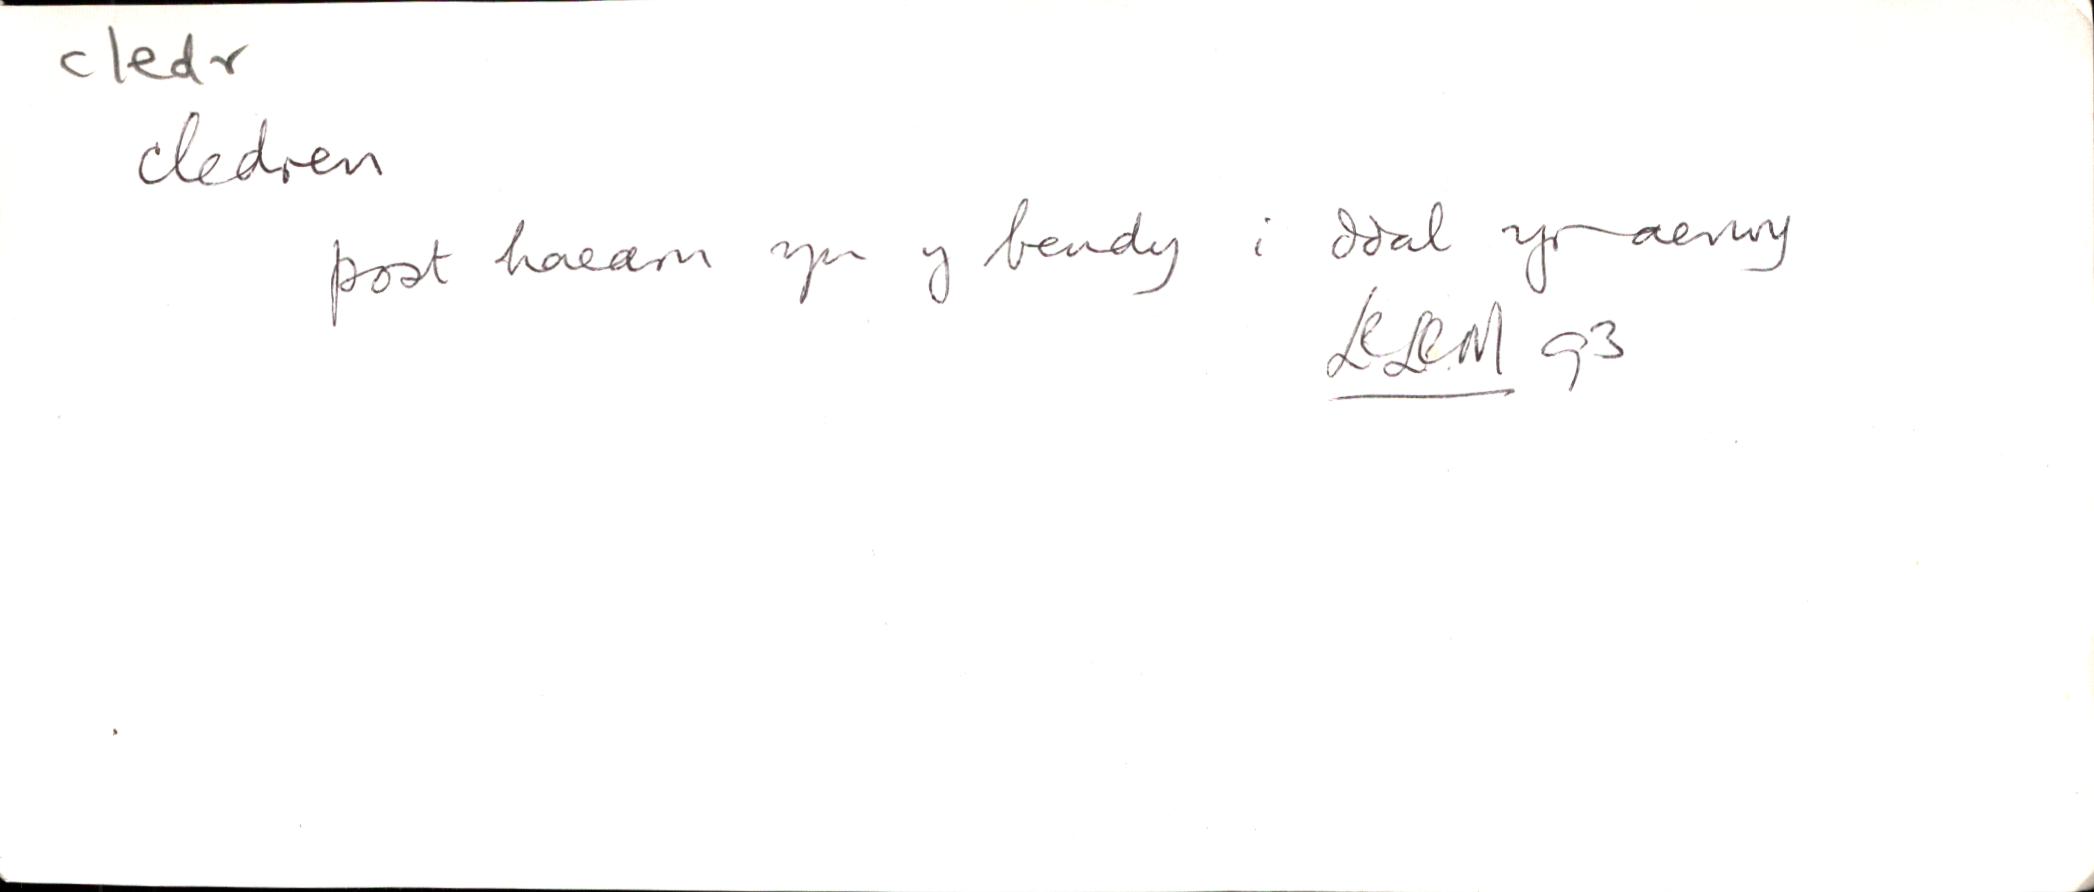 cledr
cledren
post haearn yn y beudy i ddal yr aerwy
LlLlM 93